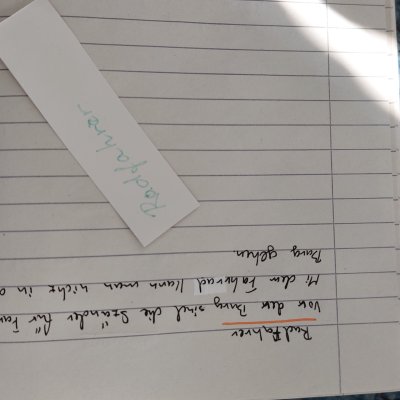 Radfahrer
Vor der Burg sind die Ständer für
Mi dem Fahrrad kann man nicht in
Burg gehen
Radfahrer